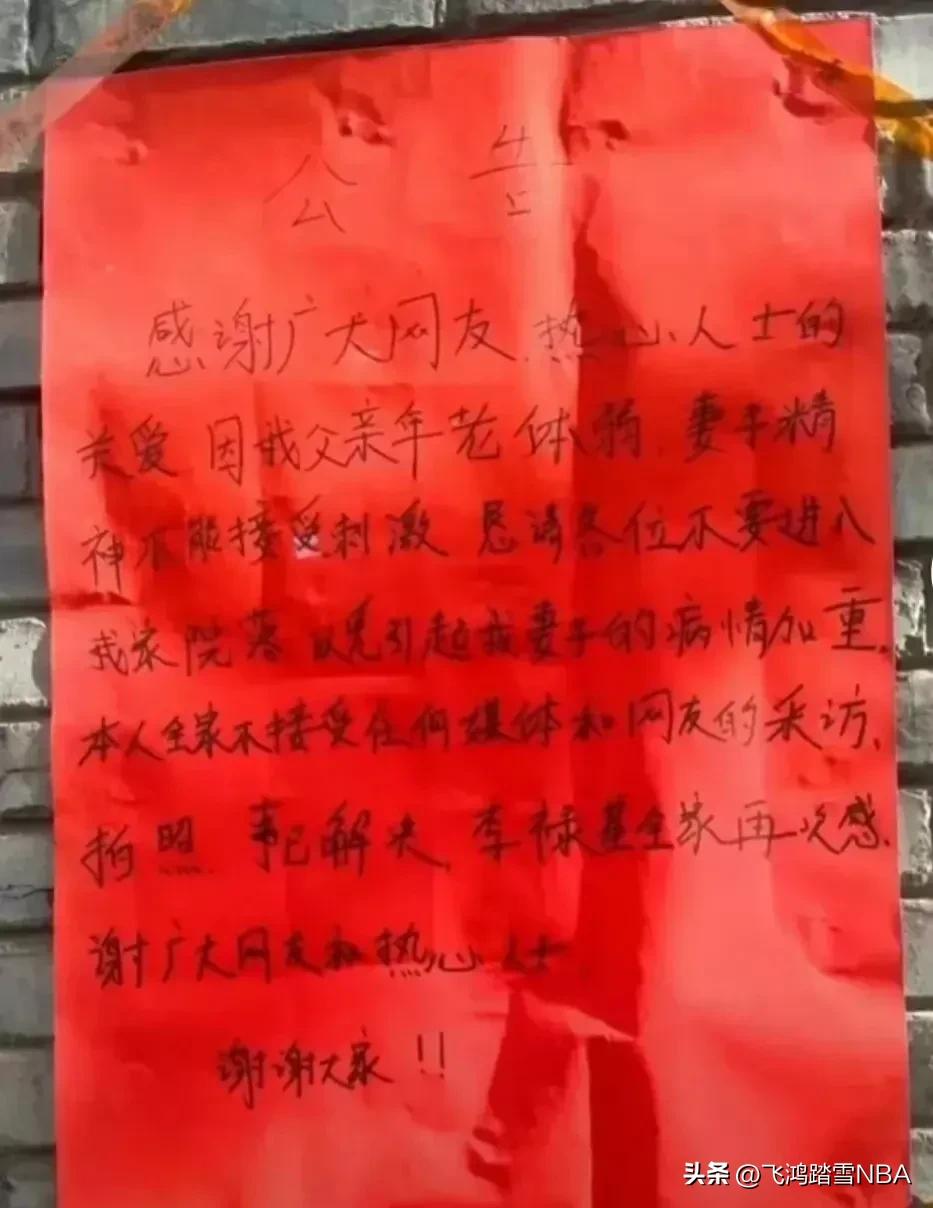 公告
感谢广大网友、热心人士的
关爱 因我父亲年老体弱、妻子精
神不能接受刺激 恳请各位不要进入
我家院落 以免引起我妻子的病情加重、
本人全家不接受任何媒体和网友的采访、
拍照 事已解决、李禄基全家再次感
谢广大网友和热心人士
谢谢大家!!
头条 @飞鸿踏雪NBA